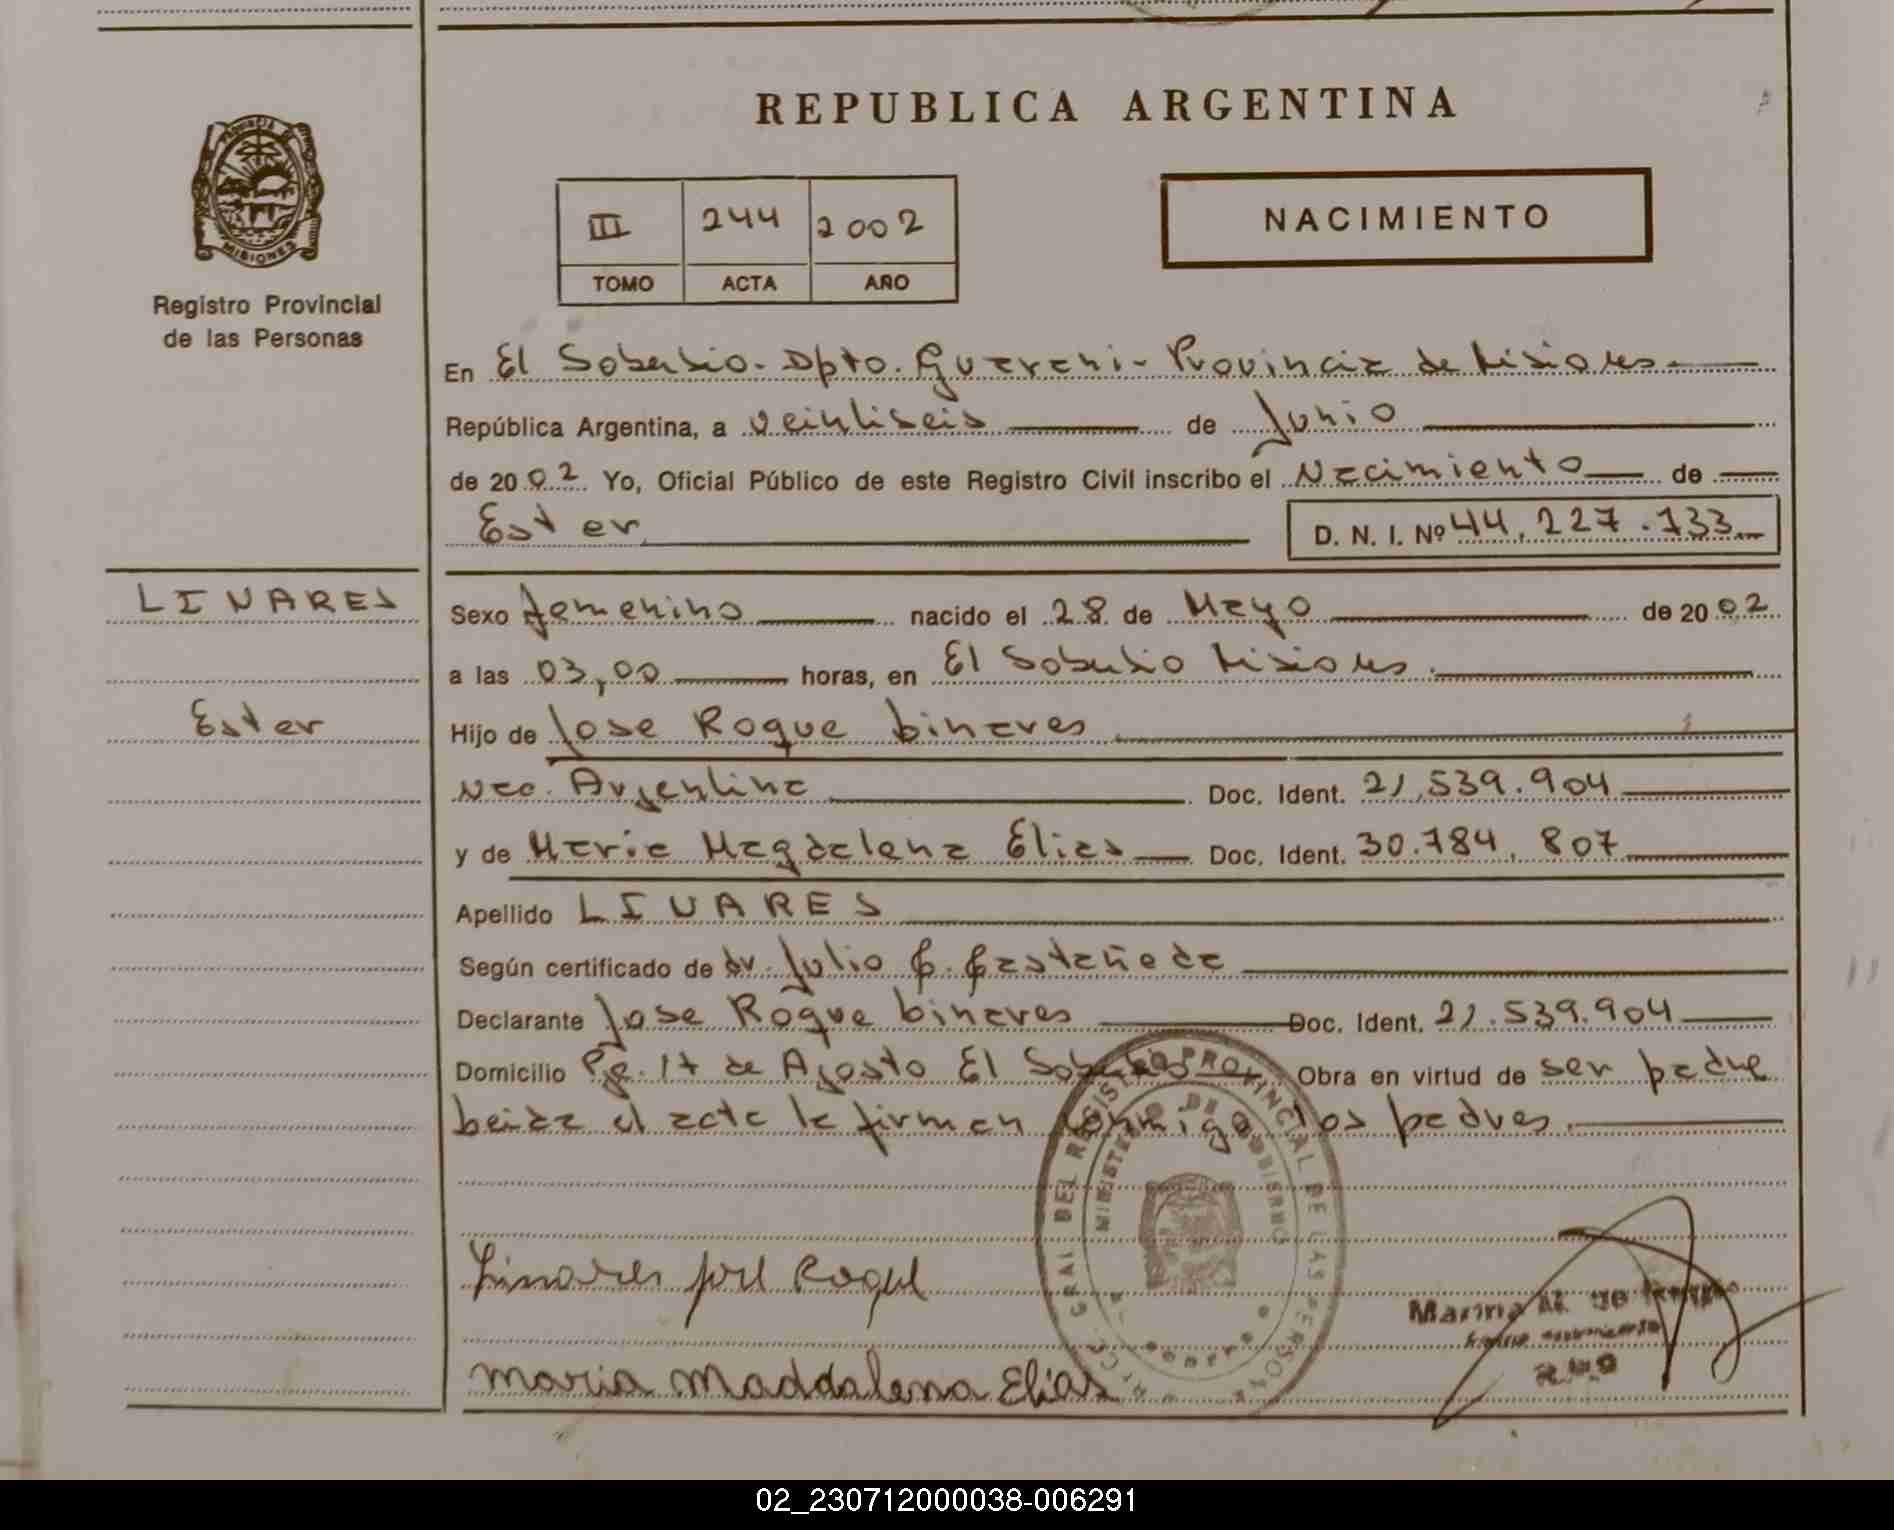 REPUBLICA ARGENTINA
MISIONES
Registro Provincial
de las Personas
III 244 2002
TOMO ACTA AÑO
NACIMIENTO
En El Soberbio - Dpto. Guarani - Provincia de Misiones
República Argentina, a veintiseis de Junio
de 2002 Yo, Oficial Público de este Registro Civil inscribo el Nacimiento de
Ester D. N. I. Nº 44.227.733
LINARES
Ester
Sexo femenino nacido el 28 de Mayo de 2002
a las 03,00 horas, en El Soberbio Misiones.
Hijo de Jose Roque Linares
Nac. Argentina Doc. Ident. 21.539.904
y de Maria Magdalena Elias Doc. Ident. 30.784.807
Apellido LINARES
Según certificado de Dr. Julio C. Castañeda
Declarante Jose Roque Linares Doc. Ident. 21.539.904
Domicilio Pje. 17 de Agosto El Soberbio Obra en virtud de ser padre
Leida el acta la firman conmigo los padres.
Linares José Roque
Maria Maddalena Elias
MINISTERIO DE GOBIERNO
DEL REGISTRO PROVINCIAL DE LAS PERSONAS
02_230712000038-006291